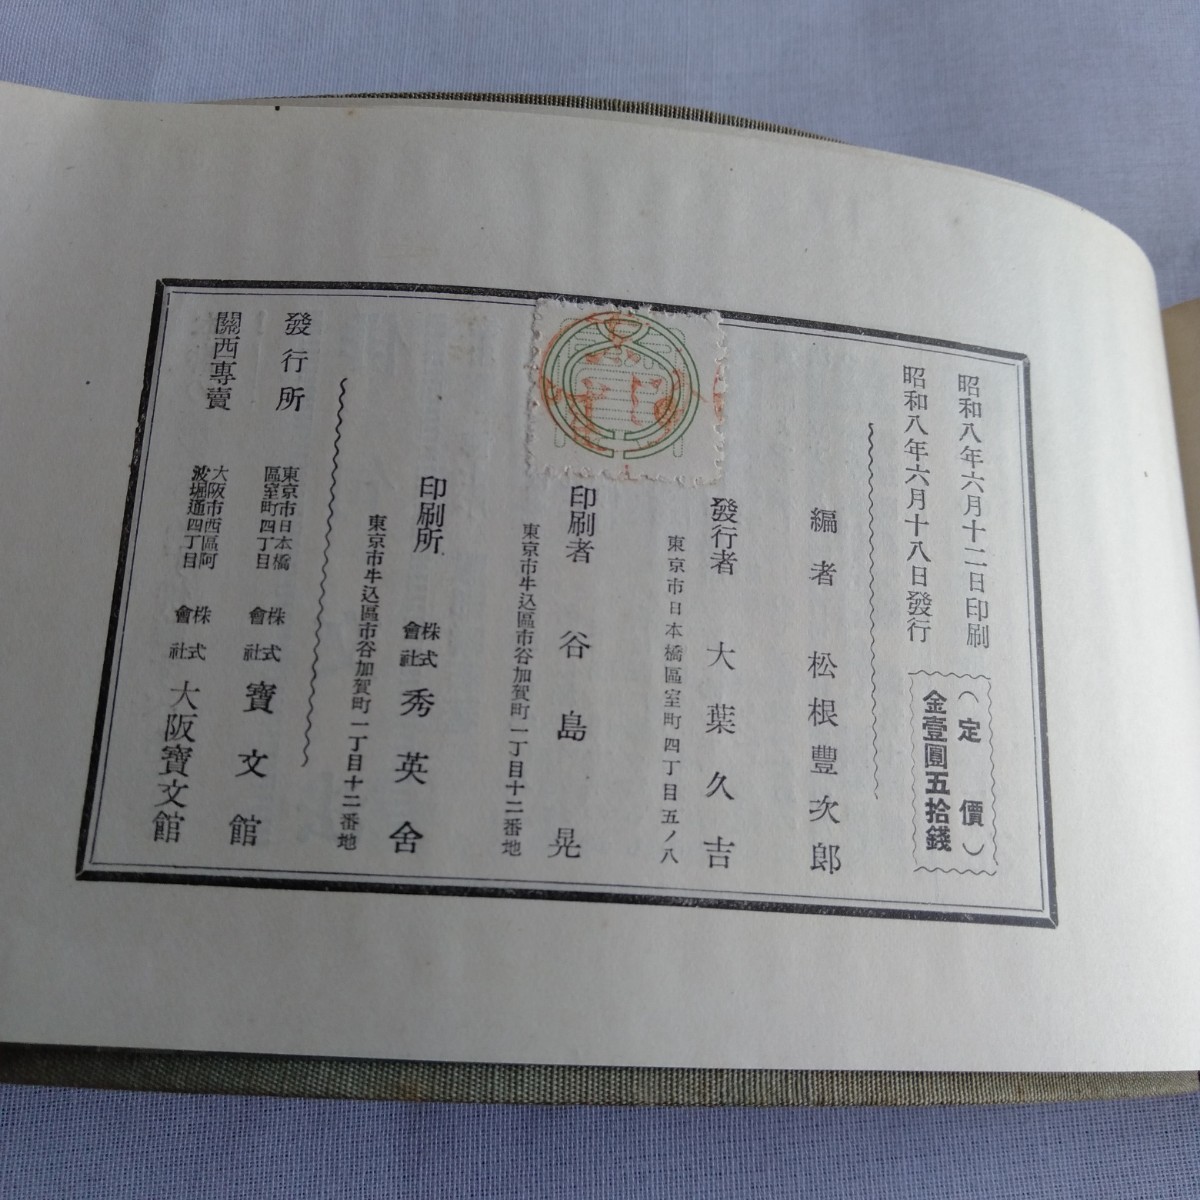 昭和八年六月十二日印刷
昭和八年六月十八日發行
（定價）
金壹圓五拾錢
編者 松根豐次郎
發行者 大葉久吉
東京市日本橋區室町四丁目五ノ八
印刷者 谷島晃
東京市牛込區市谷加賀町一丁目十二番地
印刷所 株式會社 秀英舍
東京市牛込區市谷加賀町一丁目十二番地
發行所 東京市日本橋區室町四丁目 株式會社 寶文館
關西專賣 大阪市西區阿波堀通四丁目 株式會社 大阪寶文館